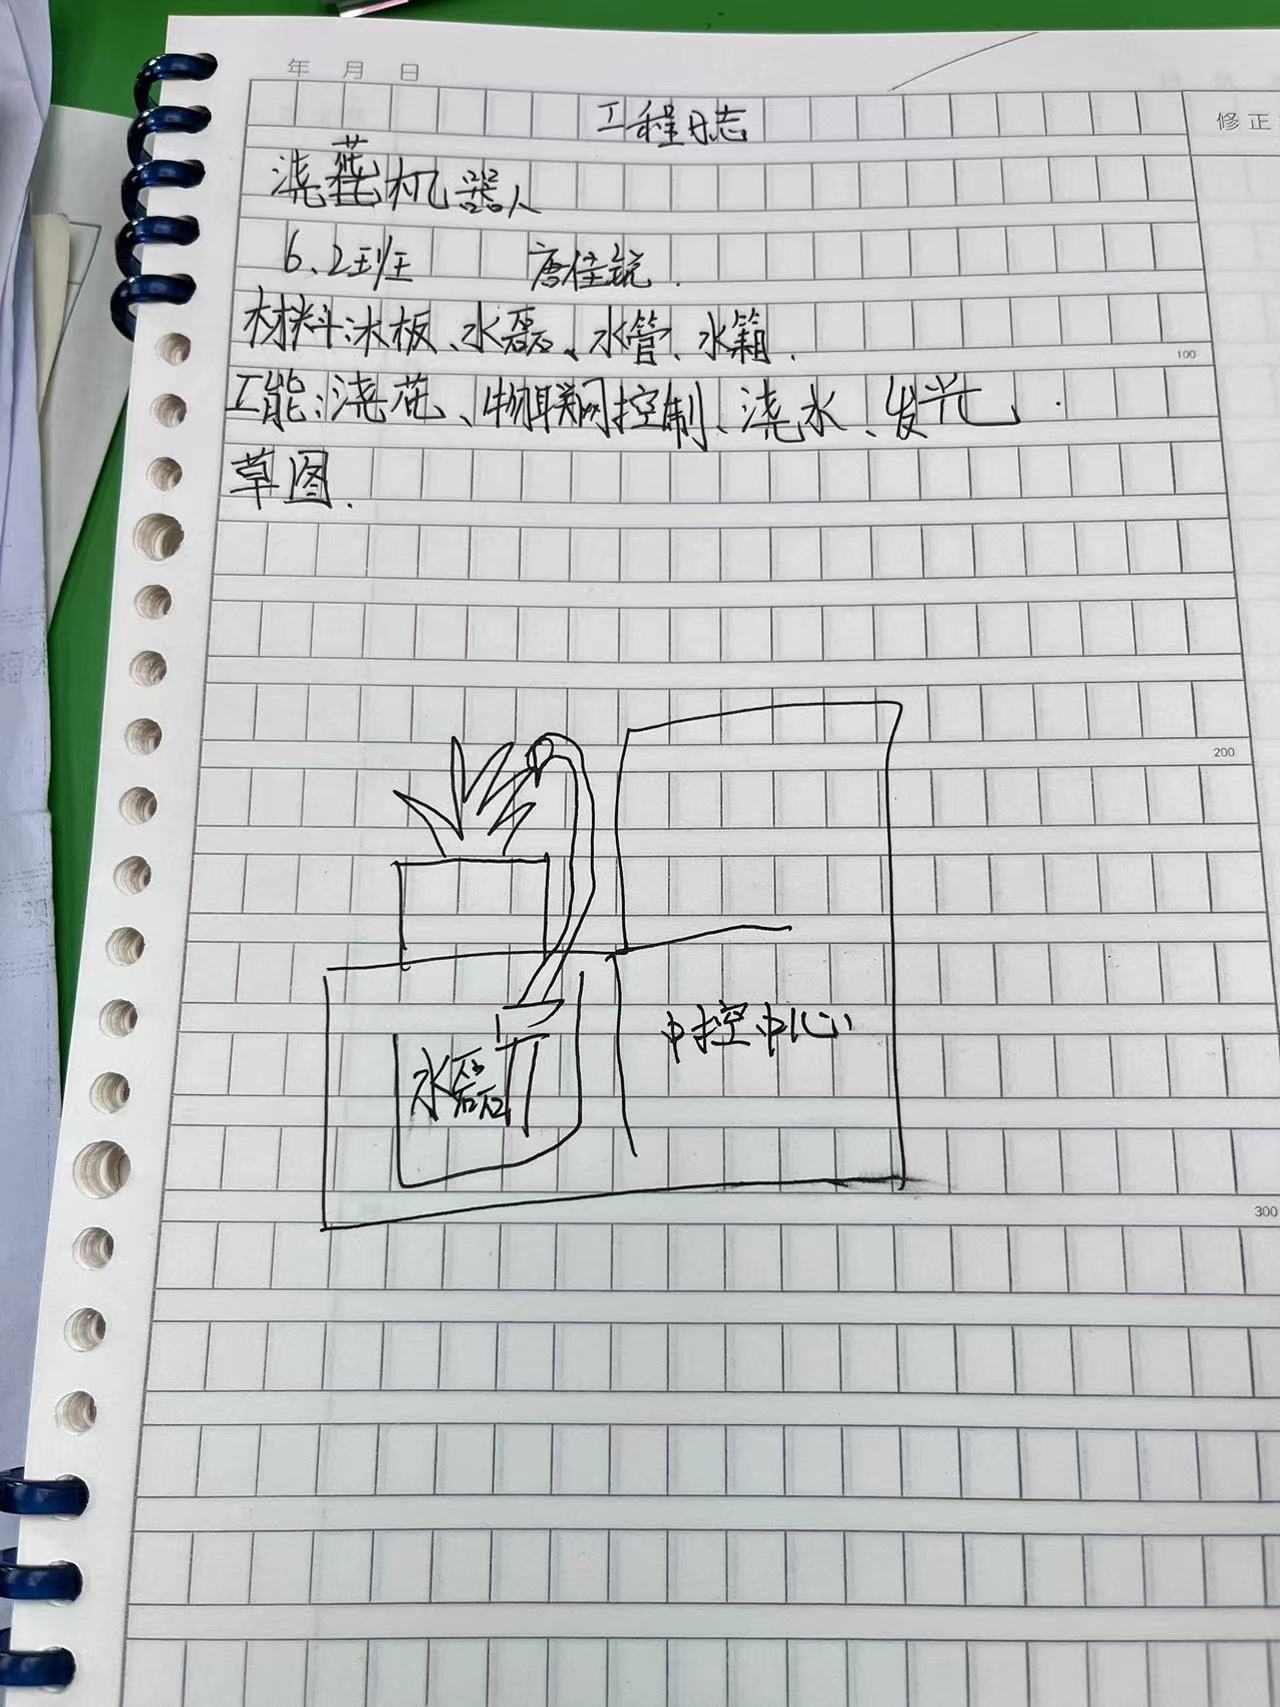 年 月 日
工程日志
修正
浇花机器人
6.2班 唐佳锐.
材料:木板、水磊、水管、水箱.
100
工能:浇花、物联网控制、浇水、发光.
草图.
200
中控中心
水磊
300